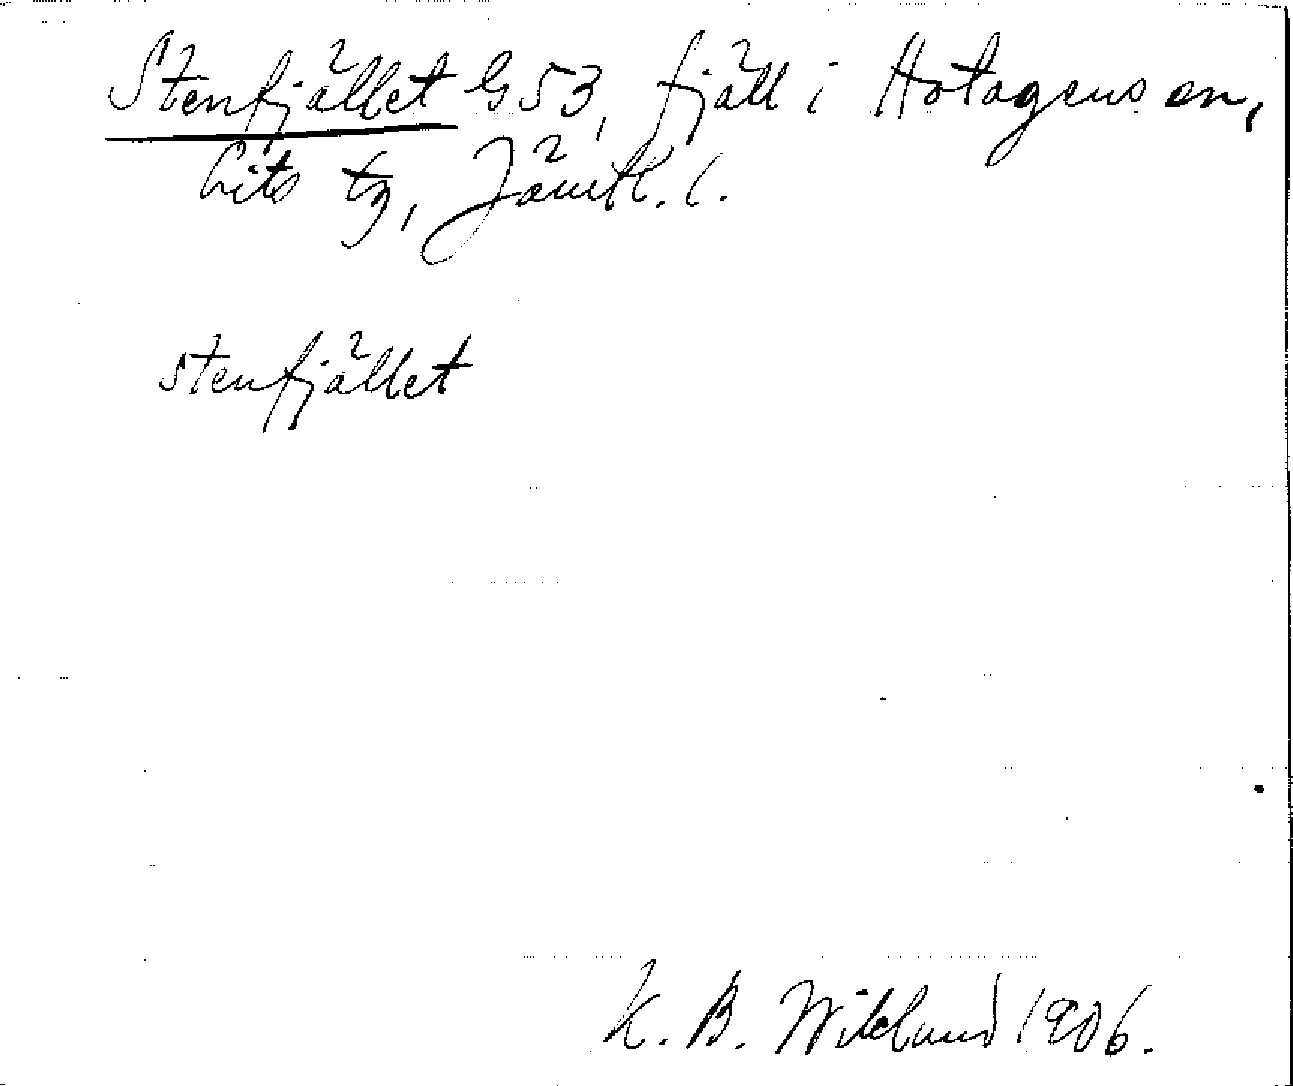 Stenfjället G53, fjäll i Hotagens sn,
Lits tg, Jämtl. l.
stenfjället
K. B. Wiklund 1906.